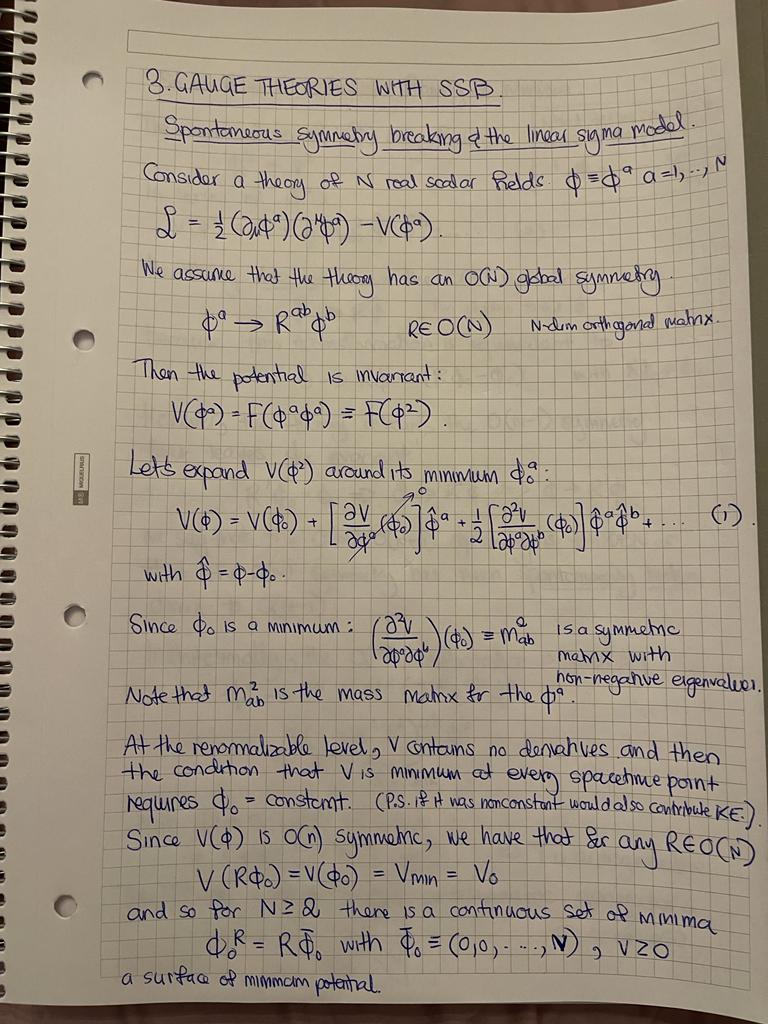 3. GAUGE THEORIES WITH SSB.
Spontaneous symmetry breaking & the linear sigma model.
Consider a theory of N real scalar fields. ϕ ≡ ϕᵃ a=1,..., N
ℒ = ½(∂μϕᵃ)(∂^μϕᵃ) - V(ϕᵃ).
We assume that the theory has an O(N) global symmetry.
ϕᵃ → Rᵃᵇϕᵇ R∈O(N) N-dim orthogonal matrix.
Then the potential is invariant:
V(ϕᵃ) = F(ϕᵃϕᵃ) ≡ F(ϕ²).
Let's expand V(ϕ²) around its minimum ϕ₀ᵃ:
V(ϕ) = V(ϕ₀) + [∂V/∂ϕᵃ (ϕ₀)]→0 ϕ̂ᵃ + ½[∂²V/∂ϕᵃ∂ϕᵇ (ϕ₀)] ϕ̂ᵃϕ̂ᵇ + .... (1).
with ϕ̂ = ϕ-ϕ₀.
Since ϕ₀ is a minimum: (∂²V/∂ϕᵃ∂ϕᵇ)(ϕ₀) ≡ m²ab is a symmetric
matrix with
non-negative eigenvalues.
Note that m²ab is the mass matrix for the ϕᵃ.
At the renormalizable level, V contains no derivatives and then
the condition that V is minimum at every spacetime point
requires ϕ₀ = constant. (P.S. if it was nonconstant would also contribute KE.)
Since V(ϕ) is O(n) symmetric, we have that for any R∈O(N)
V(Rϕ₀) = V(ϕ₀) = Vmin = V₀
and so for N≥2 there is a continuous set of minima
ϕ₀ᴿ = Rϕ̄₀ with ϕ̄₀ ≡ (0,0,....,v), v≥0
a surface of minimum potential.
MIQUELRIUS